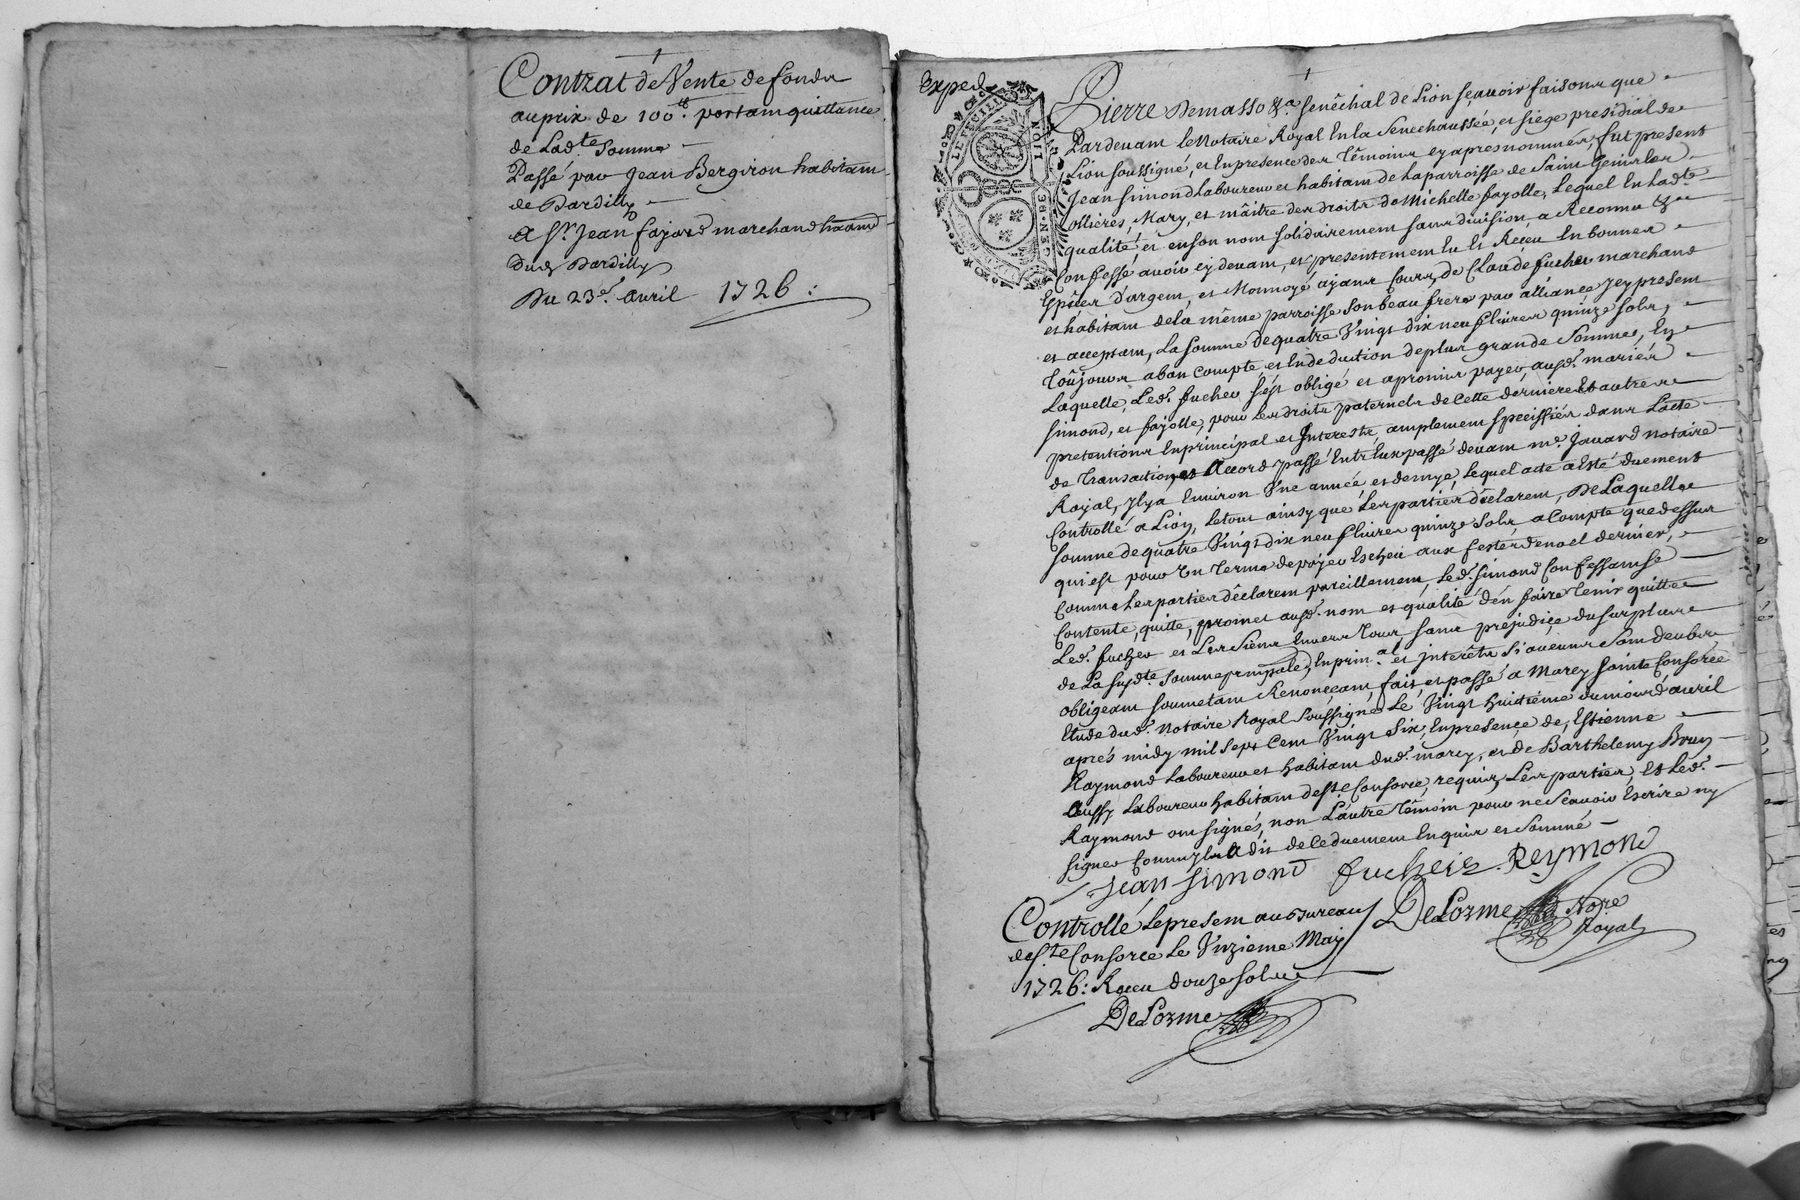 Contrat de Vente de fonds
au prix de 100ᵗᵗ. portant quittance
de Ladte Somme
Passé par Jean Bergiron habitant
de Dardilly
A Sr. Jean fayard marchand
dud. Dardilly
Du 23e. Avril 1726:
Exped
GEN. DE LION
Pierre Demasso &a. Senêchal de Lion Sçavoir faisons que
Pardevant Le Notaire Royal En la Senechaussée, et Siége presidial de
Lion Soussigné, et En presence des Témoins cy apres nommés, fut present
Jean Simond Laboureur et habitant de La parroisse de Saint Genis les
ollieres, Mary, et maître des droits de Michelle fayolle, Lequel En Ladte.
qualité, et en son nom Solidairement Sans division a Reconnu &
Confessé avoir cy devant, et presentement Eu et Reçeu En bonnes
Espêces d'argent, et Monnoyé ayant Cours, de Claude fucher marchand
et habitant de la même parroisse Son beau frere par alliance Jcy present
et acceptant, La Somme de quatre Vingt dix neuf Livres quinze Sols,
Toûjours a bon Compte, et En deduction de plus grande Somme, En
Laquelle, Led. fucher S'est obligé et a promis payer ausd. mariés
Simond, et fayolle, pour Les droits paternels de Cette derniere Et autres
pretentions En principal et Jnterests, amplement Speciffiés dans L'acte
de Transaction, et Accord passé Entr'Eux passé devant me. Jouard Notaire
Royal, Jl y a Environ Une année, et demye, Lequel acte a Esté duement
Controllé a Lion, Le tout ainsy que Les parties déclarent, De Laquelle
Somme de quatre Vingt dix neuf Livres quinze Sols, a Compte que dessus
qui est pour Un Terme de payer Escheu aux festes de noel dernier,
Comme Les parties déclarent pareillement, Led. Simond Confessant Se
Contente, quitte, promet ausd. nom et qualité d'en faire Tenir quitte
Led. fucher et Les Siens Envers Tous, Sans préjudice du Surplus
de La Susdte. Somme principale, En prin.al et jnterêts Si aucuns Sont deubs
obligeant Soumetant Renonçeant, fait, et passé a Marcy Sainte Consorce
Etude dud. Notaire Royal Soussigné Le Vingt huitiéme du mois d'avril
aprés midy mil Sept Cent Vingt Six, En presence de, Estienne
Raymond Laboureur et habitant dud. marcy, et de Barthelemy Brun
aussy Laboureur habitant de Ste Consorce, requis, Les parties, Et Led.
Raymond ont signés, non L'autre Témoin pour ne Sçavoir Escrire ny
signer Comm'Jl a dit de Ce duement Enquis et Sommé
jean simond fucheiz Reymond
DeLorme Nore
Royal
Controllé Le present au Bureau
de Ste Consorce Le Unzieme May
1726: Reçeu douze Sols
DeLorme